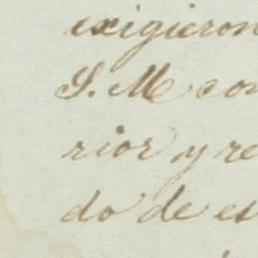 exigieron
S. M. con
rior y re
do de es